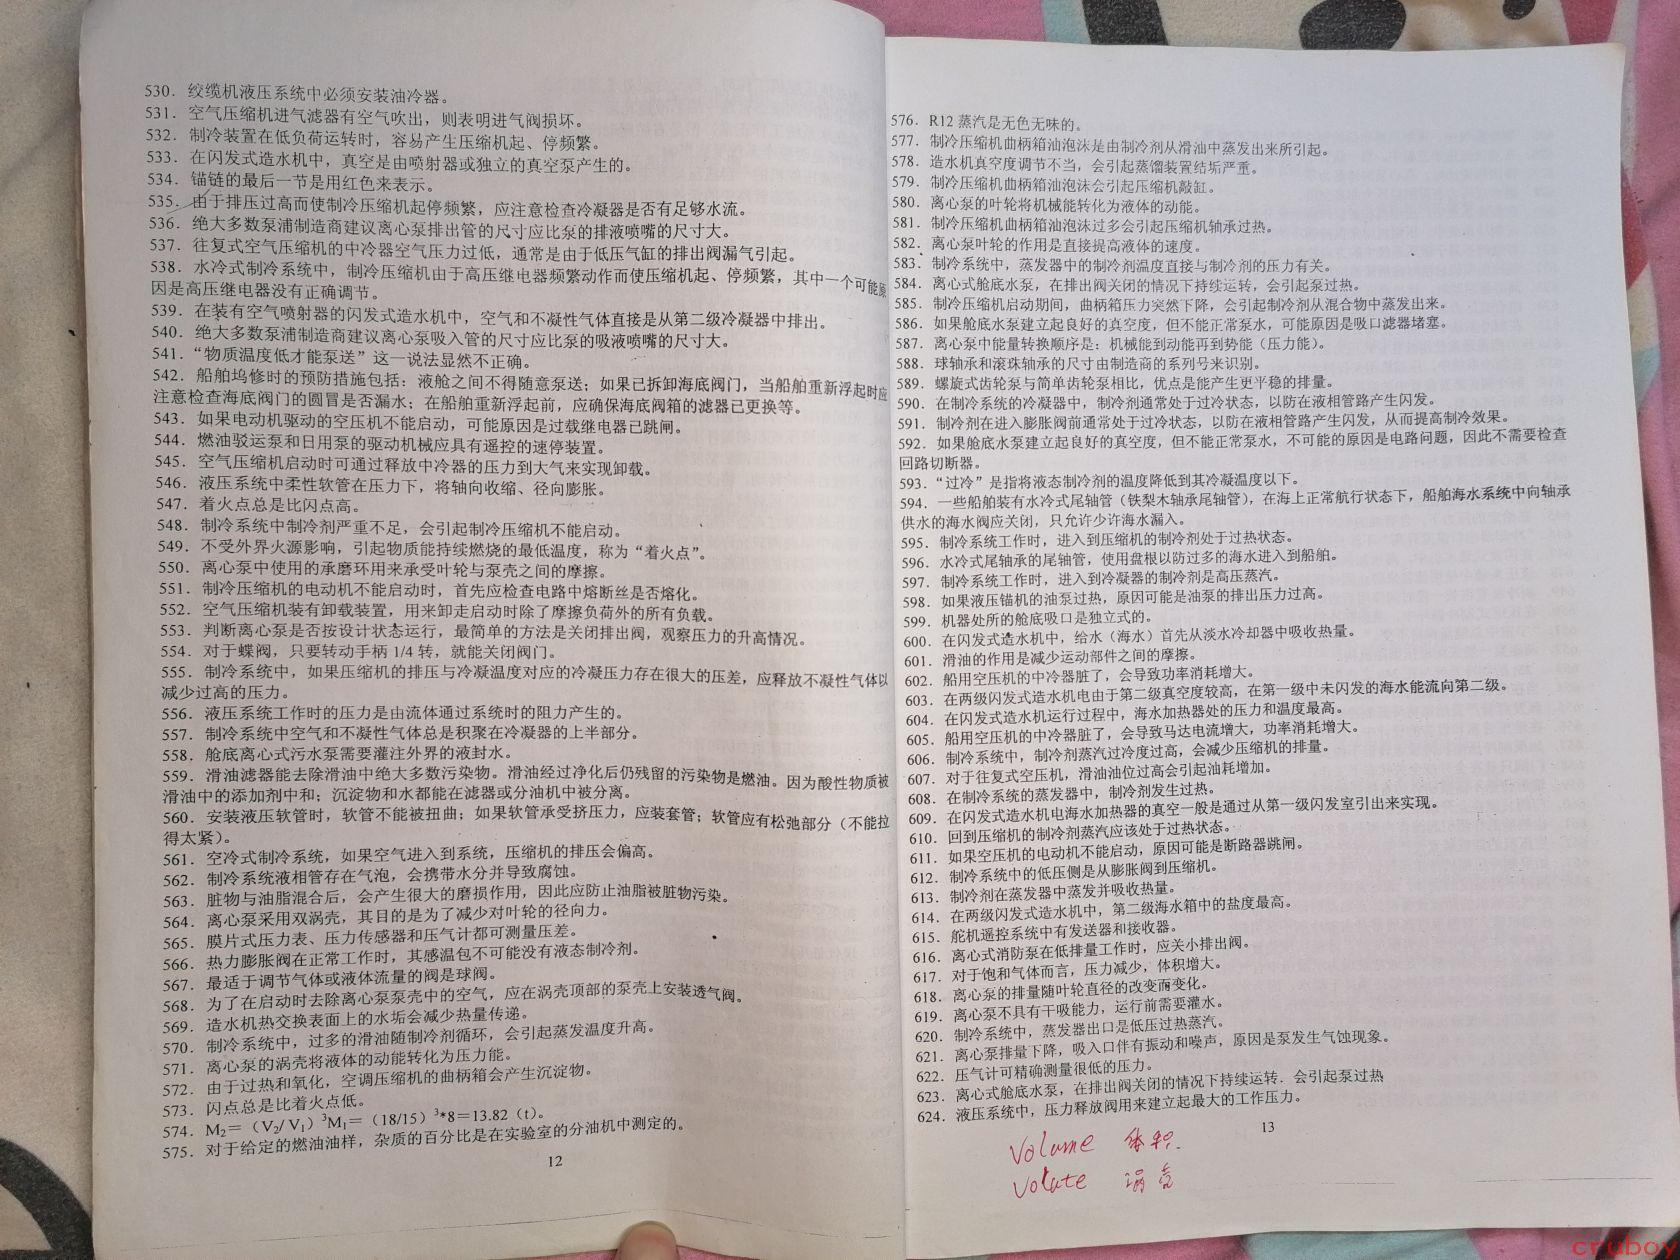 530．绞缆机液压系统中必须安装油冷器。
531．空气压缩机进气滤器有空气吹出，则表明进气阀损坏。
532．制冷装置在低负荷运转时，容易产生压缩机起、停频繁。
533．在闪发式造水机中，真空是由喷射器或独立的真空泵产生的。
534．锚链的最后一节是用红色来表示。
535．由于排压过高而使制冷压缩机起停频繁，应注意检查冷凝器是否有足够水流。
536．绝大多数泵浦制造商建议离心泵排出管的尺寸应比泵的排液喷嘴的尺寸大。
537．往复式空气压缩机的中冷器空气压力过低，通常是由于低压气缸的排出阀漏气引起。
538．水冷式制冷系统中，制冷压缩机由于高压继电器频繁动作而使压缩机起、停频繁，其中一个可能原
因是高压继电器没有正确调节。
539．在装有空气喷射器的闪发式造水机中，空气和不凝性气体直接是从第二级冷凝器中排出。
540．绝大多数泵浦制造商建议离心泵吸入管的尺寸应比泵的吸液喷嘴的尺寸大。
541．“物质温度低才能泵送”这一说法显然不正确。
542．船舶坞修时的预防措施包括：液舱之间不得随意泵送；如果已拆卸海底阀门，当船舶重新浮起时应
注意检查海底阀门的圆冒是否漏水；在船舶重新浮起前，应确保海底阀箱的滤器已更换等。
543．如果电动机驱动的空压机不能启动，可能原因是过载继电器已跳闸。
544．燃油驳运泵和日用泵的驱动机械应具有遥控的速停装置。
545．空气压缩机启动时可通过释放中冷器的压力到大气来实现卸载。
546．液压系统中柔性软管在压力下，将轴向收缩、径向膨胀。
547．着火点总是比闪点高。
548．制冷系统中制冷剂严重不足，会引起制冷压缩机不能启动。
549．不受外界火源影响，引起物质能持续燃烧的最低温度，称为“着火点”。
550．离心泵中使用的承磨环用来承受叶轮与泵壳之间的摩擦。
551．制冷压缩机的电动机不能启动时，首先应检查电路中熔断丝是否熔化。
552．空气压缩机装有卸载装置，用来卸走启动时除了摩擦负荷外的所有负载。
553．判断离心泵是否按设计状态运行，最简单的方法是关闭排出阀，观察压力的升高情况。
554．对于蝶阀，只要转动手柄 1/4 转，就能关闭阀门。
555．制冷系统中，如果压缩机的排压与冷凝温度对应的冷凝压力存在很大的压差，应释放不凝性气体以
减少过高的压力。
556．液压系统工作时的压力是由流体通过系统时的阻力产生的。
557．制冷系统中空气和不凝性气体总是积聚在冷凝器的上半部分。
558．舱底离心式污水泵需要灌注外界的液封水。
559．滑油滤器能去除滑油中绝大多数污染物。滑油经过净化后仍残留的污染物是燃油。因为酸性物质被
滑油中的添加剂中和；沉淀物和水都能在滤器或分油机中被分离。
560．安装液压软管时，软管不能被扭曲；如果软管承受挤压力，应装套管；软管应有松弛部分（不能拉
得太紧）。
561．空冷式制冷系统，如果空气进入到系统，压缩机的排压会偏高。
562．制冷系统液相管存在气泡，会携带水分并导致腐蚀。
563．脏物与油脂混合后，会产生很大的磨损作用，因此应防止油脂被脏物污染。
564．离心泵采用双涡壳，其目的是为了减少对叶轮的径向力。
565．膜片式压力表、压力传感器和压气计都可测量压差。
566．热力膨胀阀在正常工作时，其感温包不可能没有液态制冷剂。
567．最适于调节气体或液体流量的阀是球阀。
568．为了在启动时去除离心泵泵壳中的空气，应在涡壳顶部的泵壳上安装透气阀。
569．造水机热交换表面上的水垢会减少热量传递。
570．制冷系统中，过多的滑油随制冷剂循环，会引起蒸发温度升高。
571．离心泵的涡壳将液体的动能转化为压力能。
572．由于过热和氧化，空调压缩机的曲柄箱会产生沉淀物。
573．闪点总是比着火点低。
574．M₂＝（V₂/ V₁）³M₁＝（18/15）³*8＝13.82（t）。
575．对于给定的燃油油样，杂质的百分比是在实验室的分油机中测定的。
12
576．R12 蒸汽是无色无味的。
577．制冷压缩机曲柄箱油泡沫是由制冷剂从滑油中蒸发出来所引起。
578．造水机真空度调节不当，会引起蒸馏装置结垢严重。
579．制冷压缩机曲柄箱油泡沫会引起压缩机敲缸。
580．离心泵的叶轮将机械能转化为液体的动能。
581．制冷压缩机曲柄箱油泡沫过多会引起压缩机轴承过热。
582．离心泵叶轮的作用是直接提高液体的速度。
583．制冷系统中，蒸发器中的制冷剂温度直接与制冷剂的压力有关。
584．离心式舱底水泵，在排出阀关闭的情况下持续运转，会引起泵过热。
585．制冷压缩机启动期间，曲柄箱压力突然下降，会引起制冷剂从混合物中蒸发出来。
586．如果舱底水泵建立起良好的真空度，但不能正常泵水，可能原因是吸口滤器堵塞。
587．离心泵中能量转换顺序是：机械能到动能再到势能（压力能）。
588．球轴承和滚珠轴承的尺寸由制造商的系列号来识别。
589．螺旋式齿轮泵与简单齿轮泵相比，优点是能产生更平稳的排量。
590．在制冷系统的冷凝器中，制冷剂通常处于过冷状态，以防在液相管路产生闪发。
591．制冷剂在进入膨胀阀前通常处于过冷状态，以防在液相管路产生闪发，从而提高制冷效果。
592．如果舱底水泵建立起良好的真空度，但不能正常泵水，不可能的原因是电路问题，因此不需要检查
回路切断器。
593．“过冷”是指将液态制冷剂的温度降低到其冷凝温度以下。
594．一些船舶装有水冷式尾轴管（铁梨木轴承尾轴管），在海上正常航行状态下，船舶海水系统中向轴承
供水的海水阀应关闭，只允许少许海水漏入。
595．制冷系统工作时，进入到压缩机的制冷剂处于过热状态。
596．水冷式尾轴承的尾轴管，使用盘根以防过多的海水进入到船舶。
597．制冷系统工作时，进入到冷凝器的制冷剂是高压蒸汽。
598．如果液压锚机的油泵过热，原因可能是油泵的排出压力过高。
599．机器处所的舱底吸口是独立式的。
600．在闪发式造水机中，给水（海水）首先从淡水冷却器中吸收热量。
601．滑油的作用是减少运动部件之间的摩擦。
602．船用空压机的中冷器脏了，会导致功率消耗增大。
603．在两级闪发式造水机电由于第二级真空度较高，在第一级中未闪发的海水能流向第二级。
604．在闪发式造水机运行过程中，海水加热器处的压力和温度最高。
605．船用空压机的中冷器脏了，会导致马达电流增大，功率消耗增大。
606．制冷系统中，制冷剂蒸汽过冷度过高，会减少压缩机的排量。
607．对于往复式空压机，滑油油位过高会引起油耗增加。
608．在制冷系统的蒸发器中，制冷剂发生过热。
609．在闪发式造水机电海水加热器的真空一般是通过从第一级闪发室引出来实现。
610．回到压缩机的制冷剂蒸汽应该处于过热状态。
611．如果空压机的电动机不能启动，原因可能是断路器跳闸。
612．制冷系统中的低压侧是从膨胀阀到压缩机。
613．制冷剂在蒸发器中蒸发并吸收热量。
614．在两级闪发式造水机中，第二级海水箱中的盐度最高。
615．舵机遥控系统中有发送器和接收器。
616．离心式消防泵在低排量工作时，应关小排出阀。
617．对于饱和气体而言，压力减少，体积增大。
618．离心泵的排量随叶轮直径的改变而变化。
619．离心泵不具有干吸能力，运行前需要灌水。
620．制冷系统中，蒸发器出口是低压过热蒸汽。
621．离心泵排量下降，吸入口伴有振动和噪声，原因是泵发生气蚀现象。
622．压气计可精确测量很低的压力。
623．离心式舱底水泵，在排出阀关闭的情况下持续运转．会引起泵过热
624．液压系统中，压力释放阀用来建立起最大的工作压力。
13
Volume 体积.
Volute 涡壳
cruboy